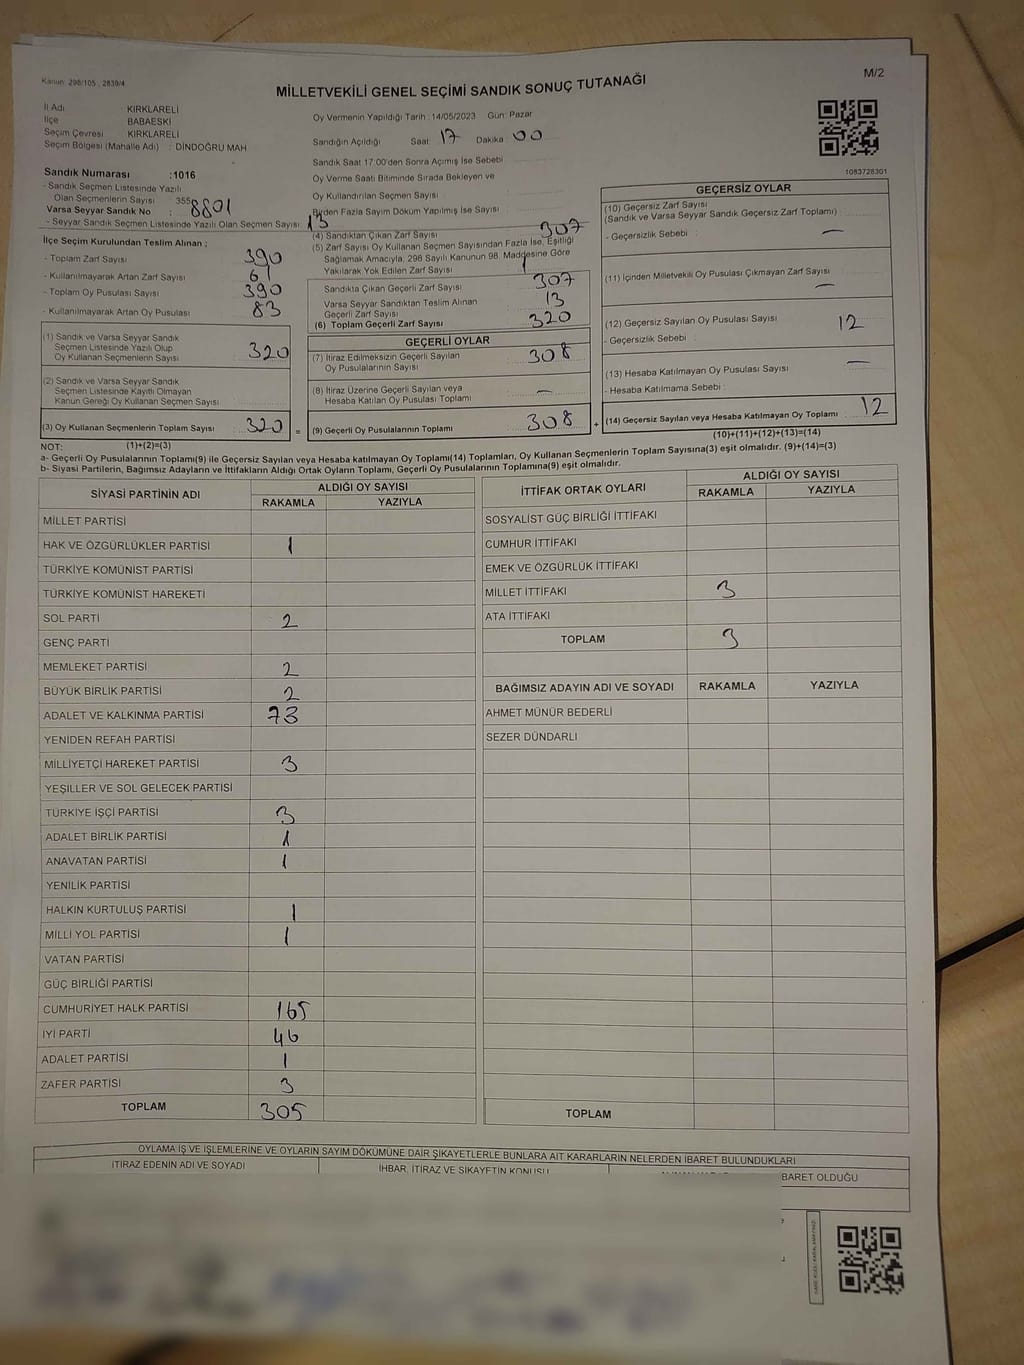 Kanun: 298/105, 2839/4
M/2
MİLLETVEKİLİ GENEL SEÇİMİ SANDIK SONUÇ TUTANAĞI
İl Adı : KIRKLARELİ
İlçe BABAESKİ
Seçim Çevresi KIRKLARELİ
Seçim Bölgesi (Mahalle Adı) : DİNDOĞRU MAH
Oy Vermenin Yapıldığı Tarih : 14/05/2023 Gün: Pazar
Sandığın Açıldığı Saat: 17 Dakika 00
Sandık Saat 17:00'den Sonra Açımış İse Sebebi
Oy Verme Saati Bitiminde Sırada Bekleyen ve
Oy Kullandırılan Seçmen Sayısı :
Birden Fazla Sayım Döküm Yapılmış İse Sayısı
1083728301
Sandık Numarası :1016
- Sandık Seçmen Listesinde Yazılı
Olan Seçmenlerin Sayısı : 355
Varsa Seyyar Sandık No : 8801
- Seyyar Sandık Seçmen Listesinde Yazılı Olan Seçmen Sayısı: 13
İlçe Seçim Kurulundan Teslim Alınan ;
- Toplam Zarf Sayısı 390
- Kullanılmayarak Artan Zarf Sayısı
- Toplam Oy Pusulası Sayısı 390
- Kullanılmayarak Artan Oy Pusulası 83
(1) Sandık ve Varsa Seyyar Sandık
Seçmen Listesinde Yazılı Olup
Oy Kullanan Seçmenlerin Sayısı 320
(2) Sandık ve Varsa Seyyar Sandık
Seçmen Listesinde Kayıtlı Olmayan
Kanun Gereği Oy Kullanan Seçmen Sayısı
(3) Oy Kullanan Seçmenlerin Toplam Sayısı 320 =
(4) Sandıktan Çıkan Zarf Sayısı 307
(5) Zarf Sayısı Oy Kullanan Seçmen Sayısından Fazla İse, Eşitliği
Sağlamak Amacıyla, 298 Sayılı Kanunun 98. Maddesine Göre
Yakılarak Yok Edilen Zarf Sayısı
Sandıkta Çıkan Geçerli Zarf Sayısı 307
Varsa Seyyar Sandıktan Teslim Alınan
Geçerli Zarf Sayısı : 13
(6) Toplam Geçerli Zarf Sayısı 320
GEÇERLİ OYLAR
(7) İtiraz Edilmeksizin Geçerli Sayılan
Oy Pusulalarının Sayısı 308
(8) İtiraz Üzerine Geçerli Sayılan veya
Hesaba Katılan Oy Pusulası Toplamı —
(9) Geçerli Oy Pusulalarının Toplamı 308 +
GEÇERSİZ OYLAR
(10) Geçersiz Zarf Sayısı
(Sandık ve Varsa Seyyar Sandık Geçersiz Zarf Toplamı)
- Geçersizlik Sebebi : —
(11) İçinden Milletvekili Oy Pusulası Çıkmayan Zarf Sayısı —
(12) Geçersiz Sayılan Oy Pusulası Sayısı 12
- Geçersizlik Sebebi
(13) Hesaba Katılmayan Oy Pusulası Sayısı —
- Hesaba Katılmama Sebebi :
(14) Geçersiz Sayılan veya Hesaba Katılmayan Oy Toplamı 12
NOT: (1)+(2)=(3) (10)+(11)+(12)+(13)=(14)
a- Geçerli Oy Pusulalarının Toplamı(9) ile Geçersiz Sayılan veya Hesaba katılmayan Oy Toplamı(14) Toplamları, Oy Kullanan Seçmenlerin Toplam Sayısına(3) eşit olmalıdır. (9)+(14)=(3)
b- Siyasi Partilerin, Bağımsız Adayların ve İttifakların Aldığı Ortak Oyların Toplamı, Geçerli Oy Pusulalarının Toplamına(9) eşit olmalıdır.
SİYASİ PARTİNİN ADI ALDIĞI OY SAYISI
RAKAMLA YAZIYLA
MİLLET PARTİSİ
HAK VE ÖZGÜRLÜKLER PARTİSİ 1
TÜRKİYE KOMÜNİST PARTİSİ
TÜRKİYE KOMÜNİST HAREKETİ
SOL PARTİ 2
GENÇ PARTİ
MEMLEKET PARTİSİ 2
BÜYÜK BİRLİK PARTİSİ 2
ADALET VE KALKINMA PARTİSİ 73
YENİDEN REFAH PARTİSİ
MİLLİYETÇİ HAREKET PARTİSİ 3
YEŞİLLER VE SOL GELECEK PARTİSİ
TÜRKİYE İŞÇİ PARTİSİ 3
ADALET BİRLİK PARTİSİ 1
ANAVATAN PARTİSİ 1
YENİLİK PARTİSİ
HALKIN KURTULUŞ PARTİSİ 1
MİLLİ YOL PARTİSİ 1
VATAN PARTİSİ
GÜÇ BİRLİĞİ PARTİSİ
CUMHURİYET HALK PARTİSİ 165
İYİ PARTİ 46
ADALET PARTİSİ 1
ZAFER PARTİSİ 3
TOPLAM 305
İTTİFAK ORTAK OYLARI ALDIĞI OY SAYISI
RAKAMLA YAZIYLA
SOSYALİST GÜÇ BİRLİĞİ İTTİFAKI
CUMHUR İTTİFAKI
EMEK VE ÖZGÜRLÜK İTTİFAKI
MİLLET İTTİFAKI 3
ATA İTTİFAKI
TOPLAM 3
BAĞIMSIZ ADAYIN ADI VE SOYADI RAKAMLA YAZIYLA
AHMET MÜNÜR BEDERLİ
SEZER DÜNDARLI
TOPLAM
OYLAMA İŞ VE İŞLEMLERİNE VE OYLARIN SAYIM DÖKÜMÜNE DAİR ŞİKAYETLERLE BUNLARA AİT KARARLARIN NELERDEN İBARET BULUNDUKLARI
İTİRAZ EDENİN ADI VE SOYADI İHBAR, İTİRAZ VE ŞİKAYETİN KONUSU BARET OLDUĞU